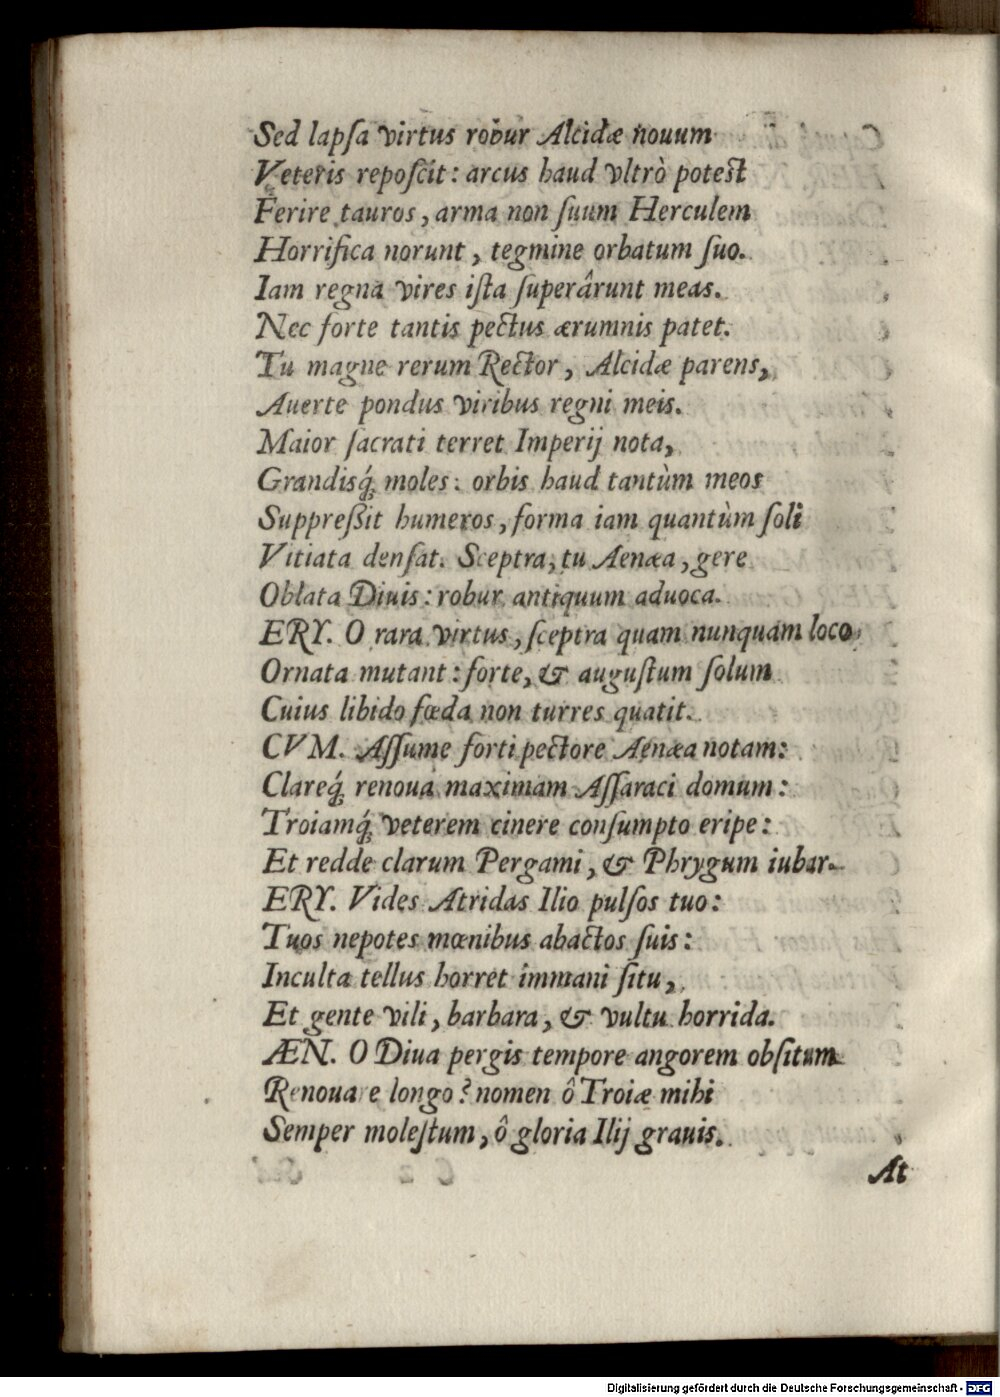 Sed lapſa virtus robur Alcidæ nouum
Veteris repoſcit: arcus haud vltrò potest
Ferire tauros, arma non ſuum Herculem
Horrifica norunt, tegmine orbatum ſuo.
Iam regna vires iſta ſuperârunt meas.
Nec forte tantis pectus ærumnis patet.
Tu magne rerum Rector, Alcidæ parens,
Auerte pondus viribus regni meis.
Maior ſacrati terret Imperij nota,
Grandisq́; moles: orbis haud tantùm meos
Suppreßit humeros, forma iam quantùm ſoli
Vitiata denſat. Sceptra, tu Aenæa, gere
Oblata Diuis: robur antiquum aduoca.
ERY. O rara virtus, ſceptra quam nunquam loco
Ornata mutant: forte, & auguſtum ſolum
Cuius libido fœda non turres quatit.
CVM. Aſſume forti pectore Aenæa notam:
Clareq́; renoua maximam Aſſaraci domum:
Troiamq́; veterem cinere conſumpto eripe:
Et redde clarum Pergami, & Phrygum iubar.
ERY. Vides Atridas Ilio pulſos tuo:
Tuos nepotes mœnibus abactos ſuis:
Inculta tellus horret immani ſitu,
Et gente vili, barbara, & vultu horrida.
ÆN. O Diua pergis tempore angorem obſitum
Renouare longo? nomen ô Troiæ mihi
Semper moleſtum, ô gloria Ilij grauis.
At
Digitalisierung gefördert durch die Deutsche Forschungsgemeinschaft - DFG